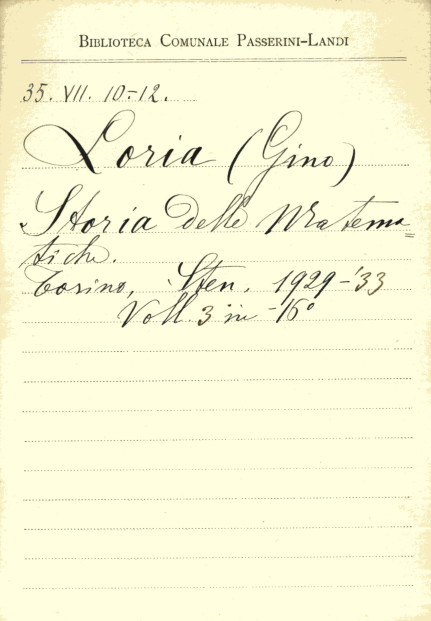 BIBLIOTECA COMUNALE PASSERINI-LANDI
35. VII. 10-12.
Loria (Gino)
Storia delle Matema=
tiche.
Torino, Sten. 1929-'33
Voll. 3 in -16°